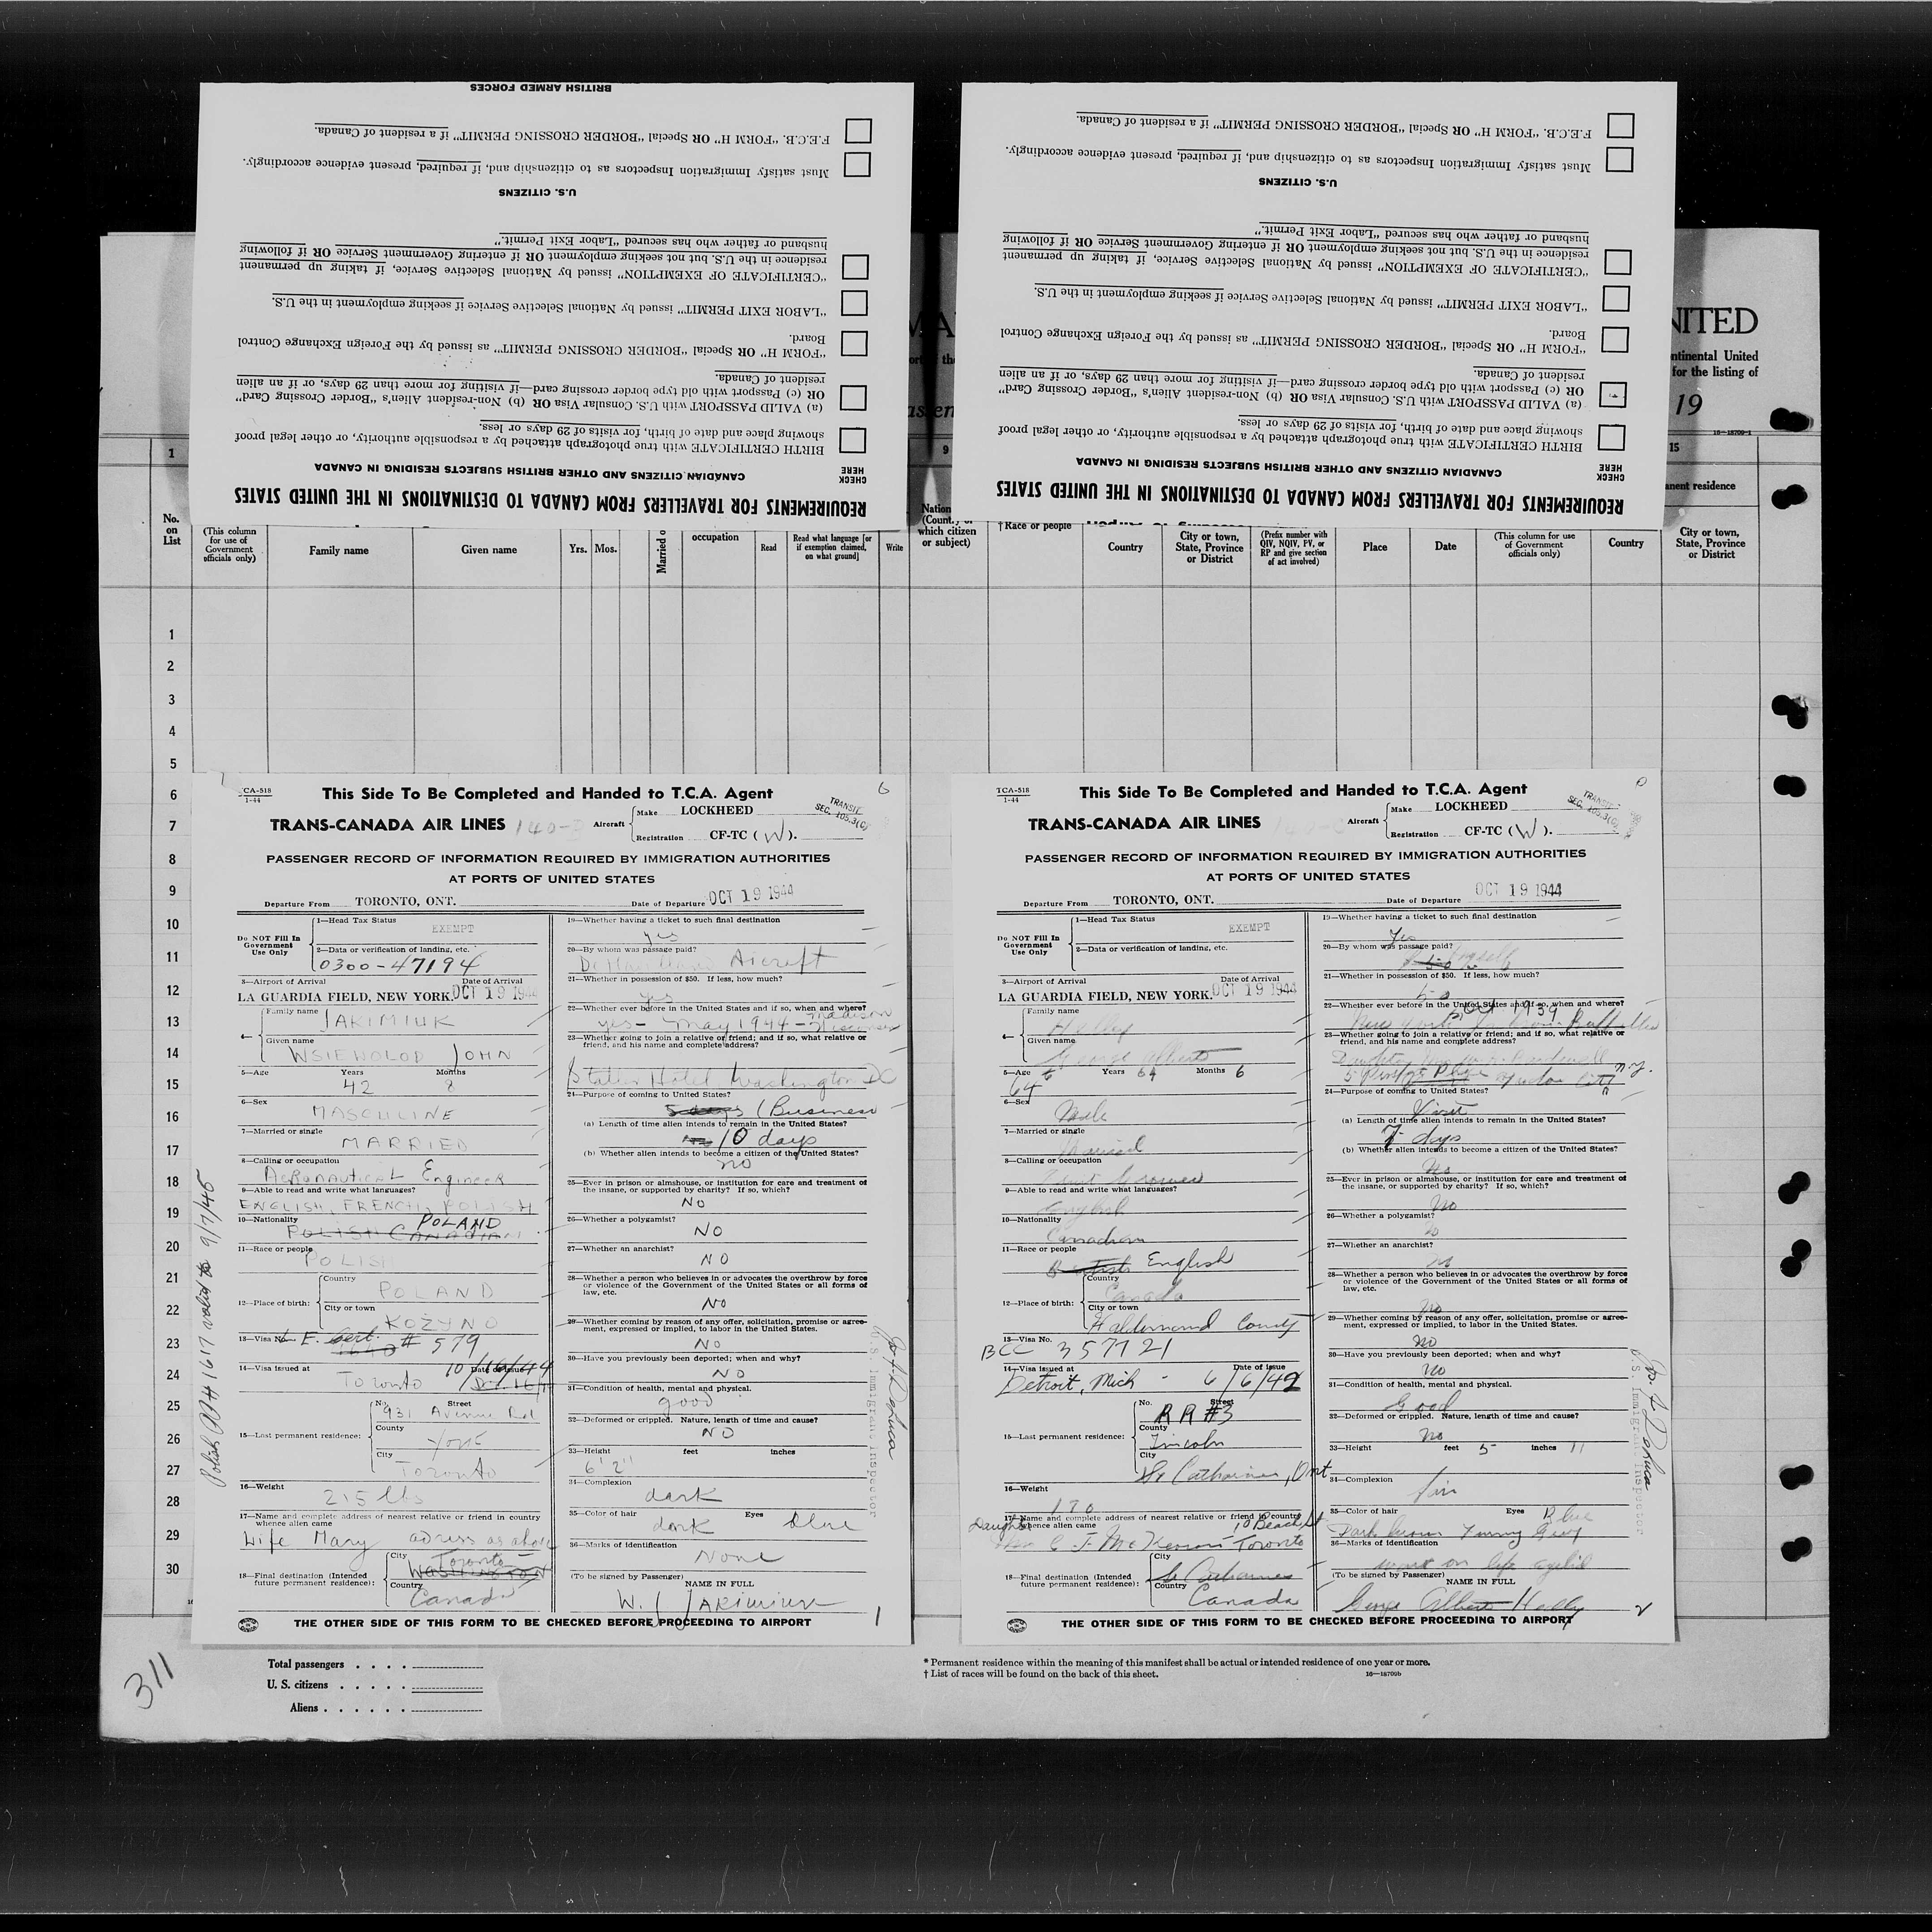 BRITISH ARMED FORCES
F.E.C.B. "FORM H" OR Special "BORDER CROSSING PERMIT" if a resident of Canada.
Must satisfy Immigration Inspectors as to citizenship and, if required, present evidence accordingly.
U.S. CITIZENS
husband or father who has secured "Labor Exit Permit."
residence in the U.S. but not seeking employment OR if entering Government Service OR if following
"CERTIFICATE OF EXEMPTION" issued by National Selective Service, if taking up permanent
"LABOR EXIT PERMIT" issued by National Selective Service if seeking employment in the U.S.
Board.
"FORM H" OR Special "BORDER CROSSING PERMIT" as issued by the Foreign Exchange Control
resident of Canada.
OR (c) Passport with old type border crossing card—if visiting for more than 29 days, or if an alien
(a) VALID PASSPORT with U.S. Consular Visa OR (b) Non-resident Alien's "Border Crossing Card"
showing place and date of birth, for visits of 29 days or less.
BIRTH CERTIFICATE with true photograph attached by a responsible authority, or other legal proof
CANADIAN CITIZENS AND OTHER BRITISH SUBJECTS RESIDING IN CANADA
CHECK HERE
REQUIREMENTS FOR TRAVELLERS FROM CANADA TO DESTINATIONS IN THE UNITED STATES
F.E.C.B. "FORM H" OR Special "BORDER CROSSING PERMIT" if a resident of Canada.
Must satisfy Immigration Inspectors as to citizenship and, if required, present evidence accordingly.
U.S. CITIZENS
husband or father who has secured "Labor Exit Permit."
residence in the U.S. but not seeking employment OR if entering Government Service OR if following
"CERTIFICATE OF EXEMPTION" issued by National Selective Service, if taking up permanent
"LABOR EXIT PERMIT" issued by National Selective Service if seeking employment in the U.S.
Board.
"FORM H" OR Special "BORDER CROSSING PERMIT" as issued by the Foreign Exchange Control
resident of Canada.
OR (c) Passport with old type border crossing card—if visiting for more than 29 days, or if an alien
(a) VALID PASSPORT with U.S. Consular Visa OR (b) Non-resident Alien's "Border Crossing Card"
showing place and date of birth, for visits of 29 days or less.
BIRTH CERTIFICATE with true photograph attached by a responsible authority, or other legal proof
CANADIAN CITIZENS AND OTHER BRITISH SUBJECTS RESIDING IN CANADA
CHECK HERE
REQUIREMENTS FOR TRAVELLERS FROM CANADA TO DESTINATIONS IN THE UNITED STATES
NITED
ntinental United
for the listing of
19
16—18709-1
1
9
15
anent residence
No. on List
(This column for use of Government officials only)
Family name
Given name
Yrs.
Mos.
Married o
occupation
Read
Read what language [or if exemption claimed, on what ground]
Write
which citizen or subject)
† Race or people
Country
City or town, State, Province or District
(Prefix number with QIV, NQIV, PV, or RP and give section of act involved)
Place
Date
(This column for use of Government officials only)
Country
City or town, State, Province or District
1
2
3
4
5
6
7
8
9
10
11
12
13
14
15
16
17
18
19
20
21
22
23
24
25
26
27
28
29
30
TCA-518
1-44
This Side To Be Completed and Handed to T.C.A. Agent
TRANS-CANADA AIR LINES
Aircraft
Make LOCKHEED
Registration CF-TC (W).
TRANSIT
SEC. 105.3(C)
PASSENGER RECORD OF INFORMATION REQUIRED BY IMMIGRATION AUTHORITIES
AT PORTS OF UNITED STATES
Departure From TORONTO, ONT. Date of Departure OCT 19 1944
Do NOT Fill In Government Use Only
1—Head Tax Status
EXEMPT
2—Data or verification of landing, etc.
0300-47194
3—Airport of Arrival Date of Arrival
LA GUARDIA FIELD, NEW YORK. OCT 19 1944
4—
Family name
JAKIMIUK
Given name
WSIEWOLOD JOHN
5—Age Years Months
42 8
6—Sex
MASCULINE
7—Married or single
MARRIED
8—Calling or occupation
AERONAUTICAL Engineer
9—Able to read and write what languages?
ENGLISH, FRENCH, POLISH
10—Nationality
POLAND
POLISH CANADIAN
11—Race or people
POLISH
12—Place of birth:
Country
POLAND
City or town
KOZYNO
13—Visa No.
# 579
14—Visa issued at Date of issue
Toronto 10/16/44
15—Last permanent residence:
No. Street
931 Avenue Rd
County
York
City
Toronto
16—Weight
215 lbs
17—Name and complete address of nearest relative or friend in country whence alien came
Wife Mary adress as above
18—Final destination (Intended future permanent residence):
City
Toronto
Washington
Country
Canada
19—Whether having a ticket to such final destination
yes
20—By whom was passage paid?
De Havilland Aircraft
21—Whether in possession of $50. If less, how much?
yes
22—Whether ever before in the United States and if so, when and where?
yes - May 1944 - Madison Wisconsin
23—Whether going to join a relative or friend; and if so, what relative or friend, and his name and complete address?
Statler Hotel Washington DC
24—Purpose of coming to United States?
Business
(a) Length of time alien intends to remain in the United States?
10 days
(b) Whether alien intends to become a citizen of the United States?
no
25—Ever in prison or almshouse, or institution for care and treatment of the insane, or supported by charity? If so, which?
NO
26—Whether a polygamist?
NO
27—Whether an anarchist?
NO
28—Whether a person who believes in or advocates the overthrow by force or violence of the Government of the United States or all forms of law, etc.
NO
29—Whether coming by reason of any offer, solicitation, promise or agreement, expressed or implied, to labor in the United States.
NO
30—Have you previously been deported; when and why?
NO
31—Condition of health, mental and physical.
good
32—Deformed or crippled. Nature, length of time and cause?
NO
33—Height feet inches
6' 2"
34—Complexion
dark
35—Color of hair Eyes
dark blue
36—Marks of identification
None
(To be signed by Passenger) NAME IN FULL
W. J. JAKIMIUK
THE OTHER SIDE OF THIS FORM TO BE CHECKED BEFORE PROCEEDING TO AIRPORT
1
U.S. Immigrant Inspector
TCA-518
1-44
This Side To Be Completed and Handed to T.C.A. Agent
TRANS-CANADA AIR LINES
Aircraft
Make LOCKHEED
Registration CF-TC (W).
TRANSIT
SEC. 105.3(C)
PASSENGER RECORD OF INFORMATION REQUIRED BY IMMIGRATION AUTHORITIES
AT PORTS OF UNITED STATES
Departure From TORONTO, ONT. Date of Departure OCT 19 1944
Do NOT Fill In Government Use Only
1—Head Tax Status
EXEMPT
2—Data or verification of landing, etc.
3—Airport of Arrival Date of Arrival
LA GUARDIA FIELD, NEW YORK. OCT 19 1944
4—
Family name
Given name
George Albert
5—Age Years 64 Months 6
6—Sex
Male
7—Married or single
Married
8—Calling or occupation
Fruit Grower
9—Able to read and write what languages?
English
10—Nationality
Canadian
11—Race or people
British English
12—Place of birth:
Country
Canada
City or town
Haldemand County
13—Visa No.
BCC 357721
14—Visa issued at Date of issue
Detroit, Mich - 6/6/42
15—Last permanent residence:
No. Street
RR #3
County
Lincoln
City
St Catharines, Ont
16—Weight
170
17—Name and complete address of nearest relative or friend in country whence alien came
Daughter 10 Beach St
Toronto
18—Final destination (Intended future permanent residence):
City
St Catharines
Country
Canada
19—Whether having a ticket to such final destination
Yes
20—By whom was passage paid?
21—Whether in possession of $50. If less, how much?
22—Whether ever before in the United States and if so, when and where?
Oct 1939
23—Whether going to join a relative or friend; and if so, what relative or friend, and his name and complete address?
24—Purpose of coming to United States?
Visit
(a) Length of time alien intends to remain in the United States?
7 days
(b) Whether alien intends to become a citizen of the United States?
No
25—Ever in prison or almshouse, or institution for care and treatment of the insane, or supported by charity? If so, which?
No
26—Whether a polygamist?
No
27—Whether an anarchist?
No
28—Whether a person who believes in or advocates the overthrow by force or violence of the Government of the United States or all forms of law, etc.
No
29—Whether coming by reason of any offer, solicitation, promise or agreement, expressed or implied, to labor in the United States.
No
30—Have you previously been deported; when and why?
No
31—Condition of health, mental and physical.
Good
32—Deformed or crippled. Nature, length of time and cause?
No
33—Height feet 5 inches 11
34—Complexion
35—Color of hair Eyes Blue
Dark brown Turning Grey
36—Marks of identification
(To be signed by Passenger) NAME IN FULL
George Albert
THE OTHER SIDE OF THIS FORM TO BE CHECKED BEFORE PROCEEDING TO AIRPORT
2
U.S. Immigrant Inspector
311
Total passengers . . . .
U. S. citizens . . . . .
Aliens . . . . . .
* Permanent residence within the meaning of this manifest shall be actual or intended residence of one year or more.
† List of races will be found on the back of this sheet.
16—18709b